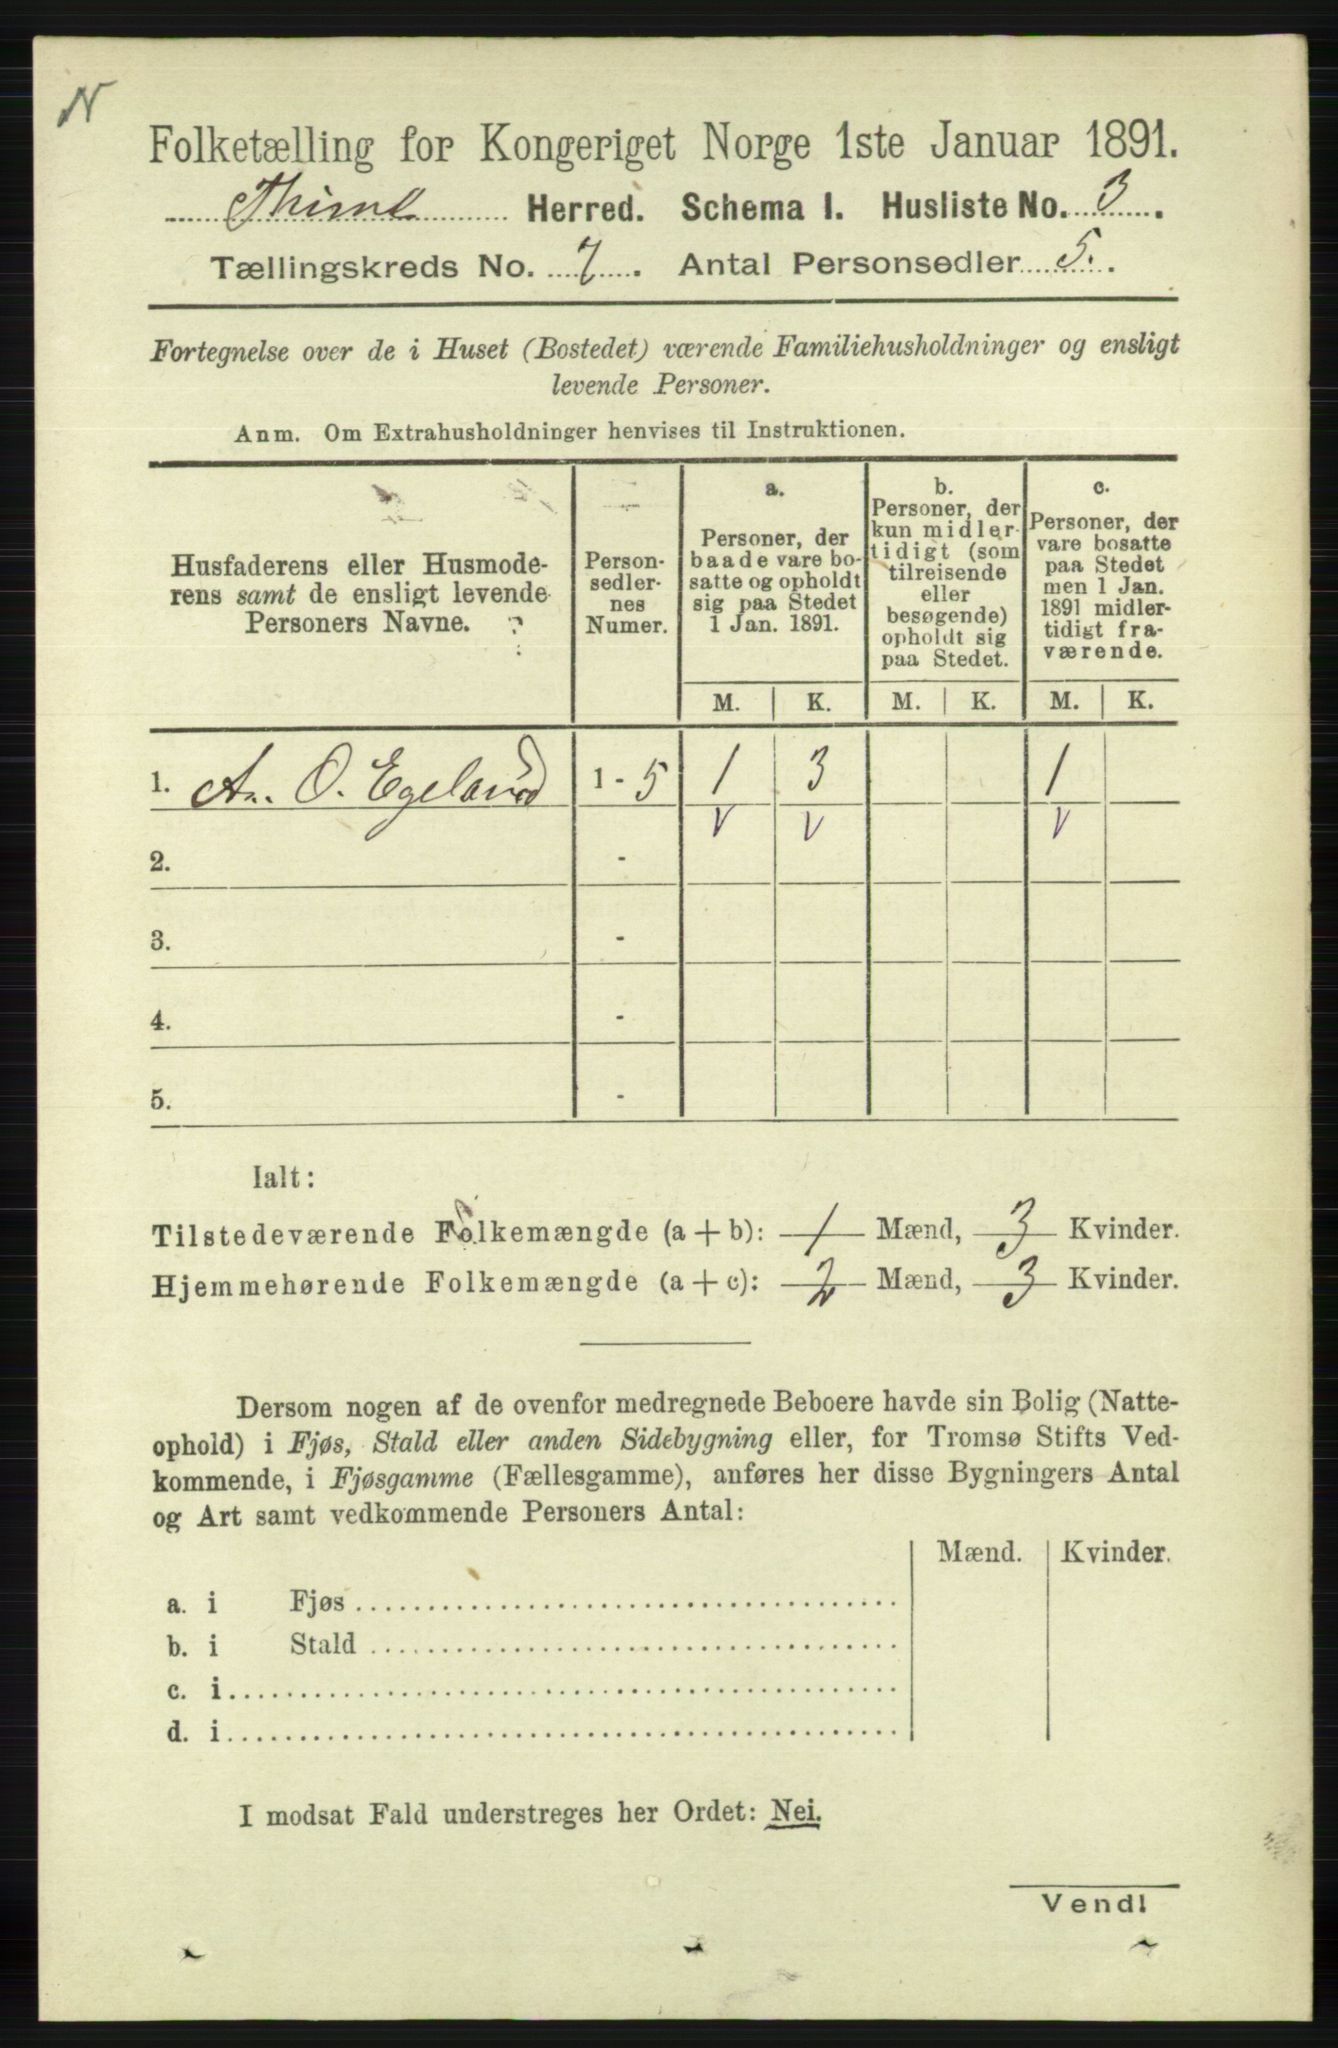 N
Folketælling for Kongeriget Norge 1ste Januar 1891.
Thime Herred. Schema I. Husliste No. 3.
Tællingskreds No. 7. Antal Personsedler 5.
Fortegnelse over de i Huset (Bostedet) værende Familiehusholdninger og ensligt
levende Personer.
Anm. Om Extrahusholdninger henvises til Instruktionen.
Husfaderens eller Husmode-
rens samt de ensligt levende
Personers Navne.
Person-
sedler-
nes
Numer.
a.
Personer, der
baade vare bo-
satte og opholdt
sig paa Stedet
1 Jan. 1891.
b.
Personer, der
kun midler-
tidigt (som
tilreisende
eller
besøgende)
opholdt sig
paa Stedet.
c.
Personer, der
vare bosatte
paa Stedet
men 1 Jan.
1891 midler-
tidigt fra-
værende.
M. K. M. K. M. K.
1. An. O. Egeland 1 - 5 1 3 1
v v v
2. -
3. -
4. -
5. -
Ialt:
Tilstedeværende Folkemængde (a + b): 1 Mænd, 3 Kvinder.
Hjemmehørende Folkemængde (a + c): 2 Mænd, 3 Kvinder.
Dersom nogen af de ovenfor medregnede Beboere havde sin Bolig (Natte-
ophold) i Fjøs, Stald eller anden Sidebygning eller, for Tromsø Stifts Ved-
kommende, i Fjøsgamme (Fællesgamme), anføres her disse Bygningers Antal
og Art samt vedkommende Personers Antal:
Mænd. Kvinder.
a. i Fjøs
b. i Stald
c. i
d. i
I modsat Fald understreges her Ordet: Nei.
Vend!